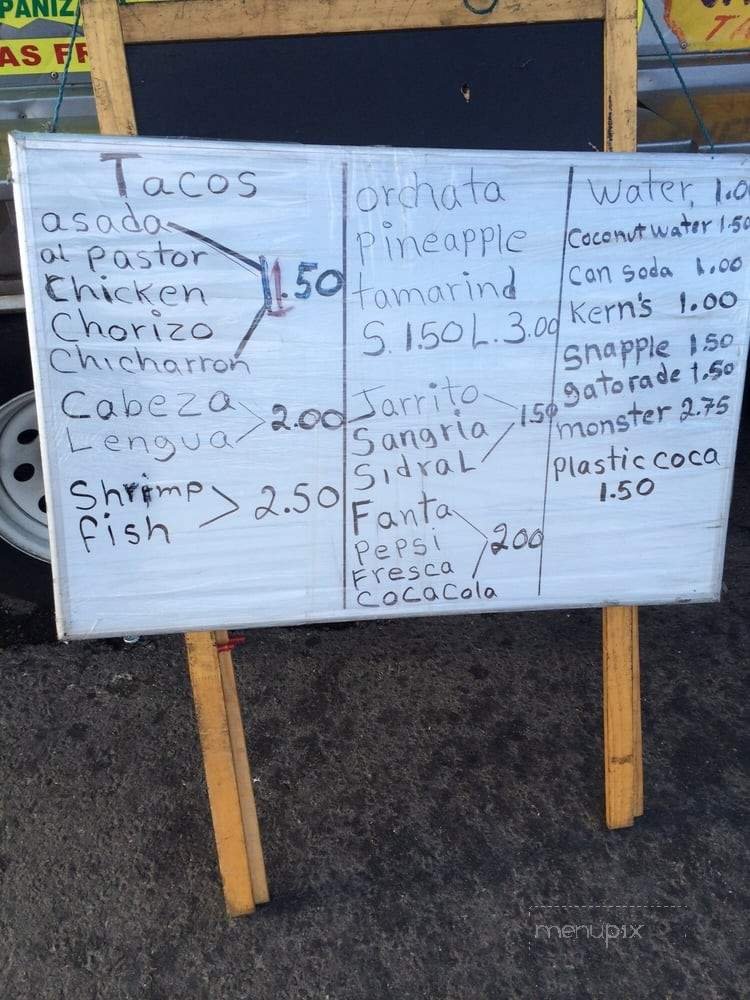 PANIZ
AS FR
Tacos
asada
al pastor
Chicken
Chorizo
Chicharron
1.50
Cabeza
Lengua
2.00
Shrimp
fish
2.50
orchata
Pineapple
tamarind
S. 1.50 L. 3.00
Jarrito
Sangria
Sidral
1.50
Fanta
Pepsi
Fresca
CocaCola
200
Water, 1.0
Coconut water 1.50
Can soda 1.00
Kern's 1.00
Snapple 1.50
gatorade 1.50
monster 2.75
Plastic coca
1.50
menupix